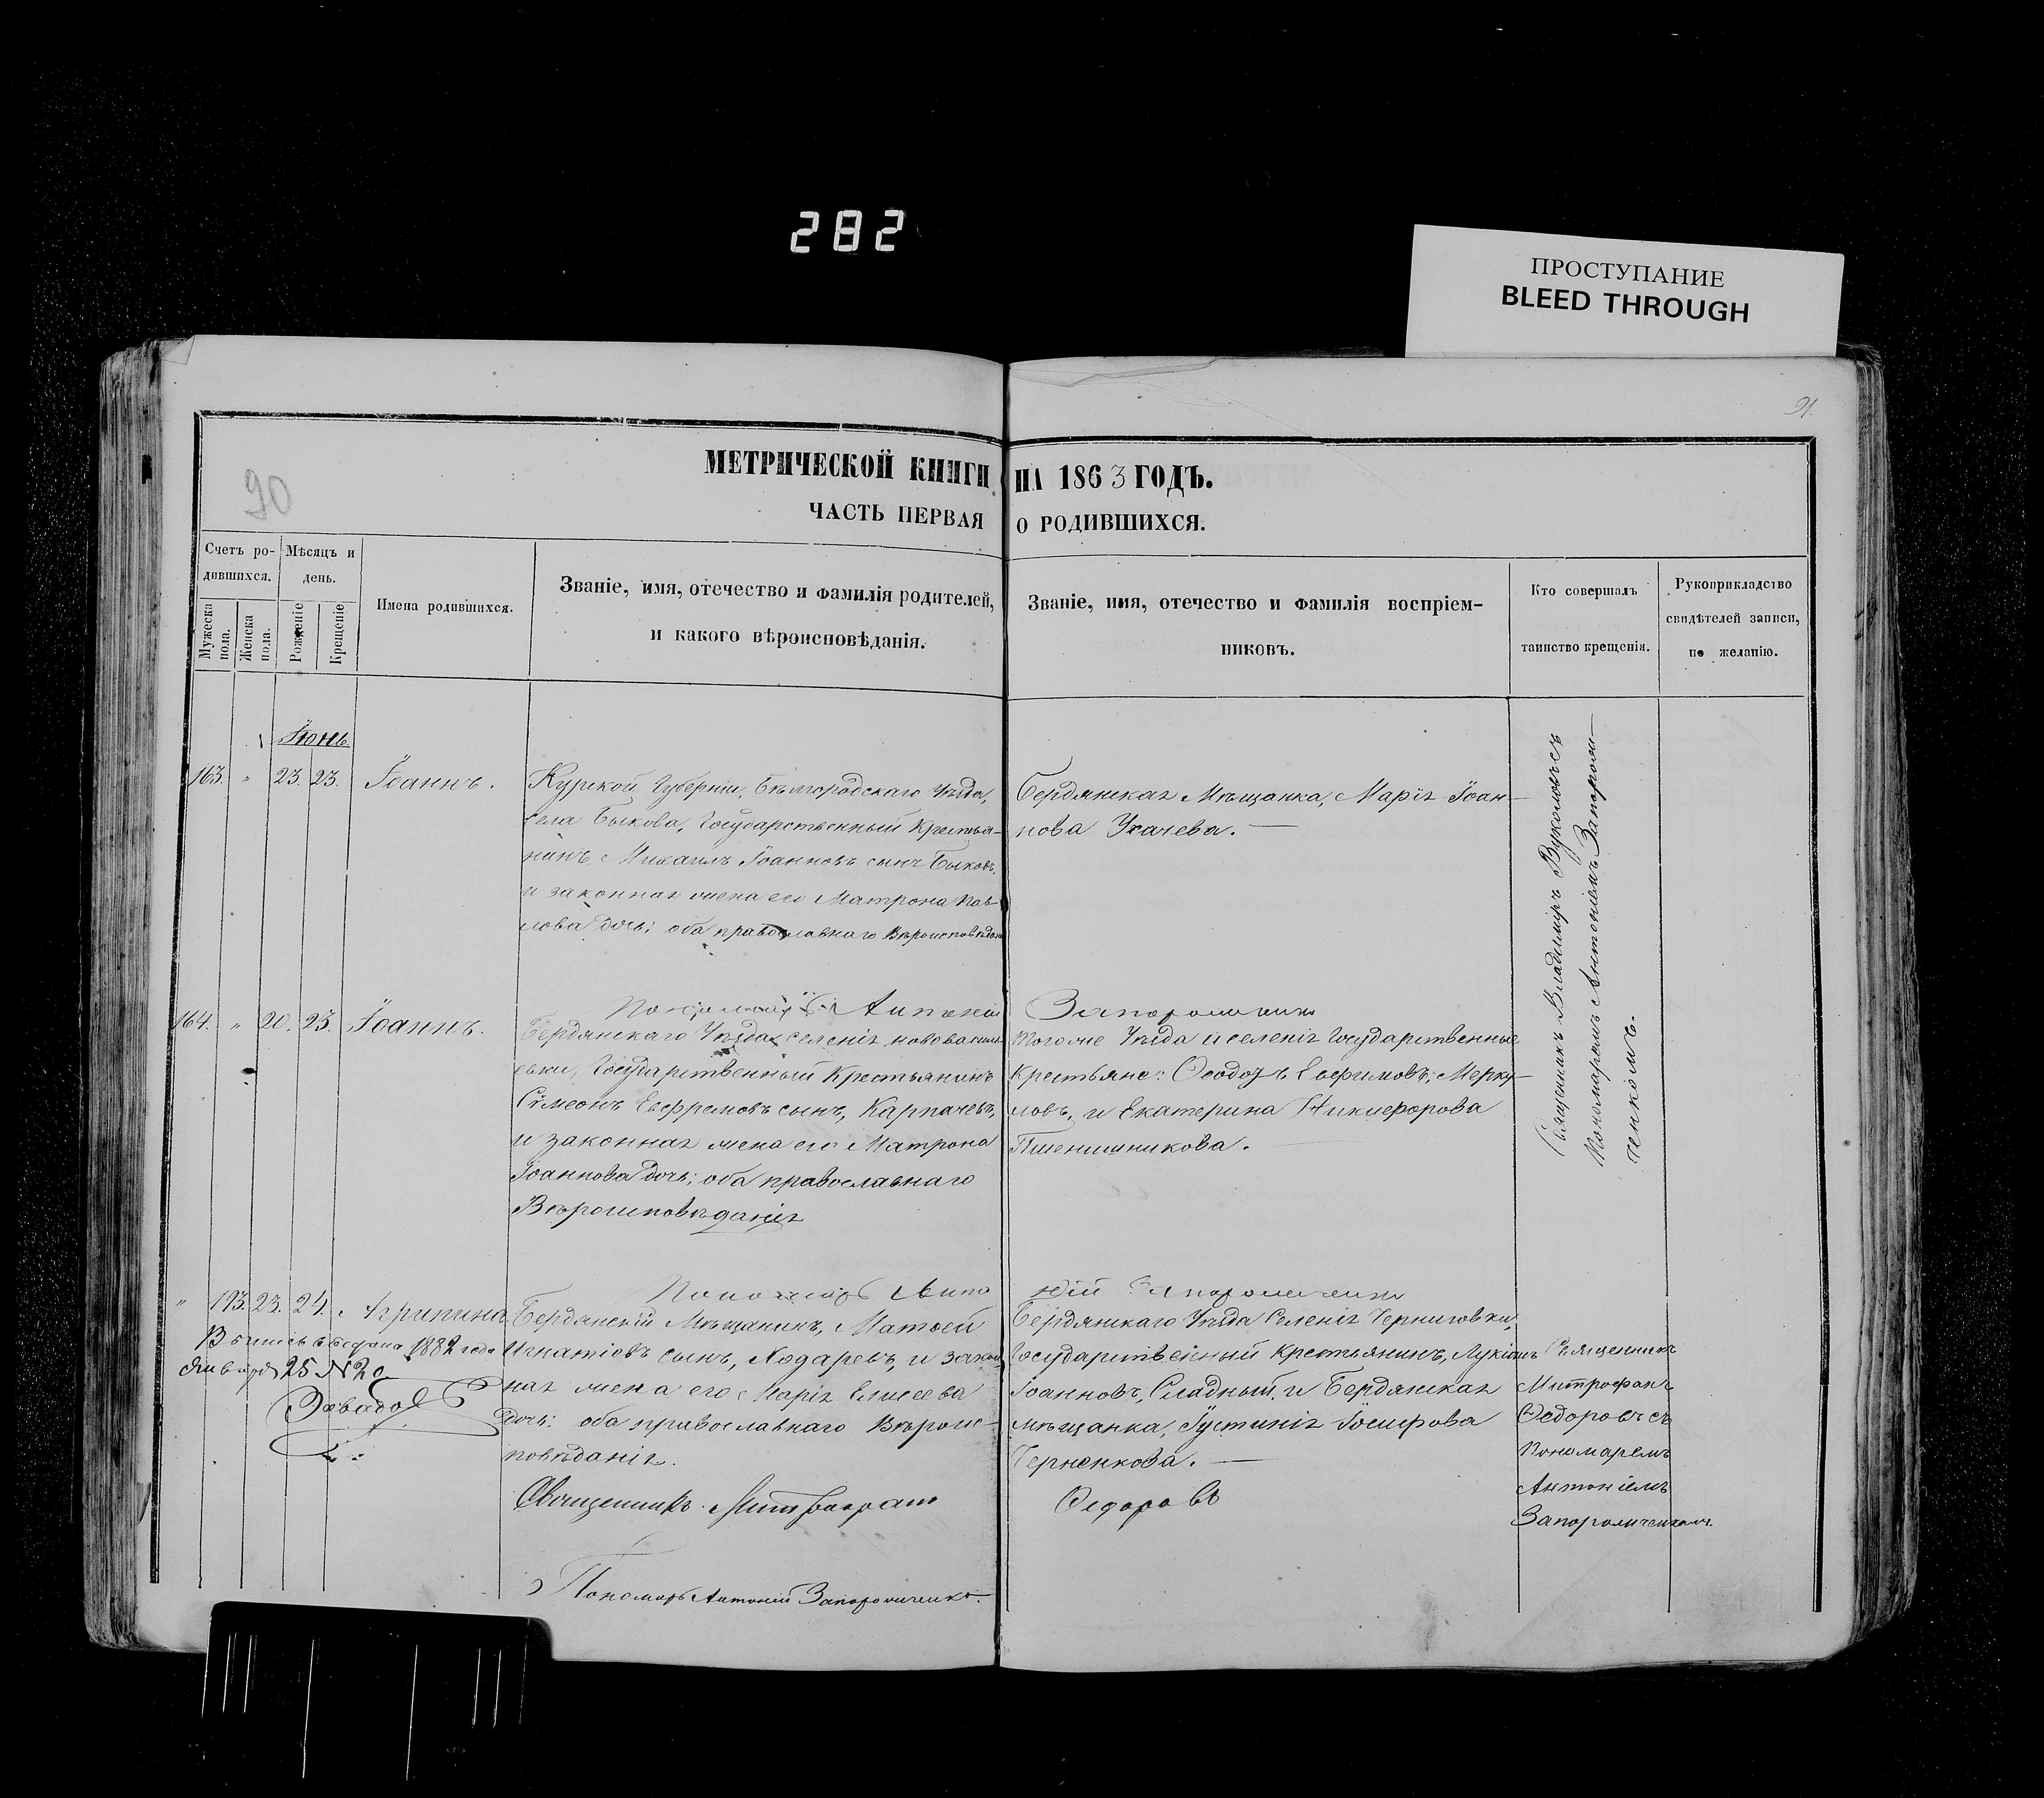 282
ПРОСТУПАНИЕ
BLEED THROUGH
91.
90
МЕТРИЧЕСКОЙ КНИГИ НА 1863 ГОДЪ.
ЧАСТЬ ПЕРВАЯ О РОДИВШИХСЯ.
Счетъ ро-
дившихся.
Мужеска пола.
Женска пола.
Мѣсяцъ и
день.
Рожденіе
Крещеніе
Имена родившихся.
Званіе, имя, отечество и фамилія родителей,
и какого вѣроисповѣданія.
Званіе, имя, отечество и фамилія воспріем-
никовъ.
Кто совершалъ
таинство крещенія.
Рукоприкладство
свидѣтелей записи,
по желанію.
Іюнь.
163. " 23. 23. Іоаннъ.
Курской Губерніи, Бѣлгородскаго Уѣзда,
села Быкова, Государственный Крестья-
нинъ, Михаилъ Іоанновъ сынъ Быковъ,
и законная жена его Матрона Пав-
лова дочь; оба православнаго Вѣроисповѣдан
Бердянская Мѣщанка, Марія Іоан-
нова Ухачева.
Священникъ Владиміръ Вуколовъ съ
Пономаремъ Антоніемъ Запорож-
ченкомъ.
Пономарь Антоній Запорожченко
164. " 20. 23. Іоаннъ.
Бердянскаго Уѣзда селенія нововасиль-
евки, Государственный Крестьянинъ
Сѵмеонъ Евфремовъ сынъ, Карпачевъ,
и законная жена его Матрона
Іоаннова дочь; оба православнаго
Вѣроисповѣданія
Тогоже Уѣзда и селенія Государственные
Крестьяне: Ѳеодотъ Евфимовъ, Мерку-
ловъ, и Екатерина Никифорова
Пшенишникова.
Пономарь Антоній Запорожченко
" 193. 23. 24. Агрипина
Бердянскій Мѣщанинъ, Матѳей
Игнатіевъ сынъ, Ходаревъ, и закон
ная жена его Марія Елисеева
дочь: оба православнаго Вѣроис-
повѣданія.
Бердянскаго Уѣзда Селенія Черниговки,
Государственный Крестьянинъ, Лукіанъ
Іоанновъ, Сладный, и Бердянская
мѣщанка, Іустинія Іосифова
Черненкова.
Священникъ
Митрофанъ
Ѳедоровъ съ
Пономаремъ
Антоніемъ
Запорожченкомъ.
1882 года
Января 25 № 20
Священникъ Митрофанъ Ѳедоровъ
Пономарь Антоній Запорожченко.